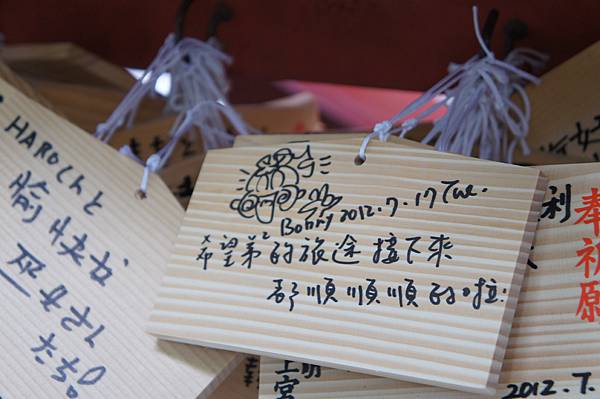 Bonny 2012.7.17 Tue.
希望第2的旅途接下來
都順順順的啦!
HAROくんと
愉快な
利
奉祈願
上宮
2012.7.